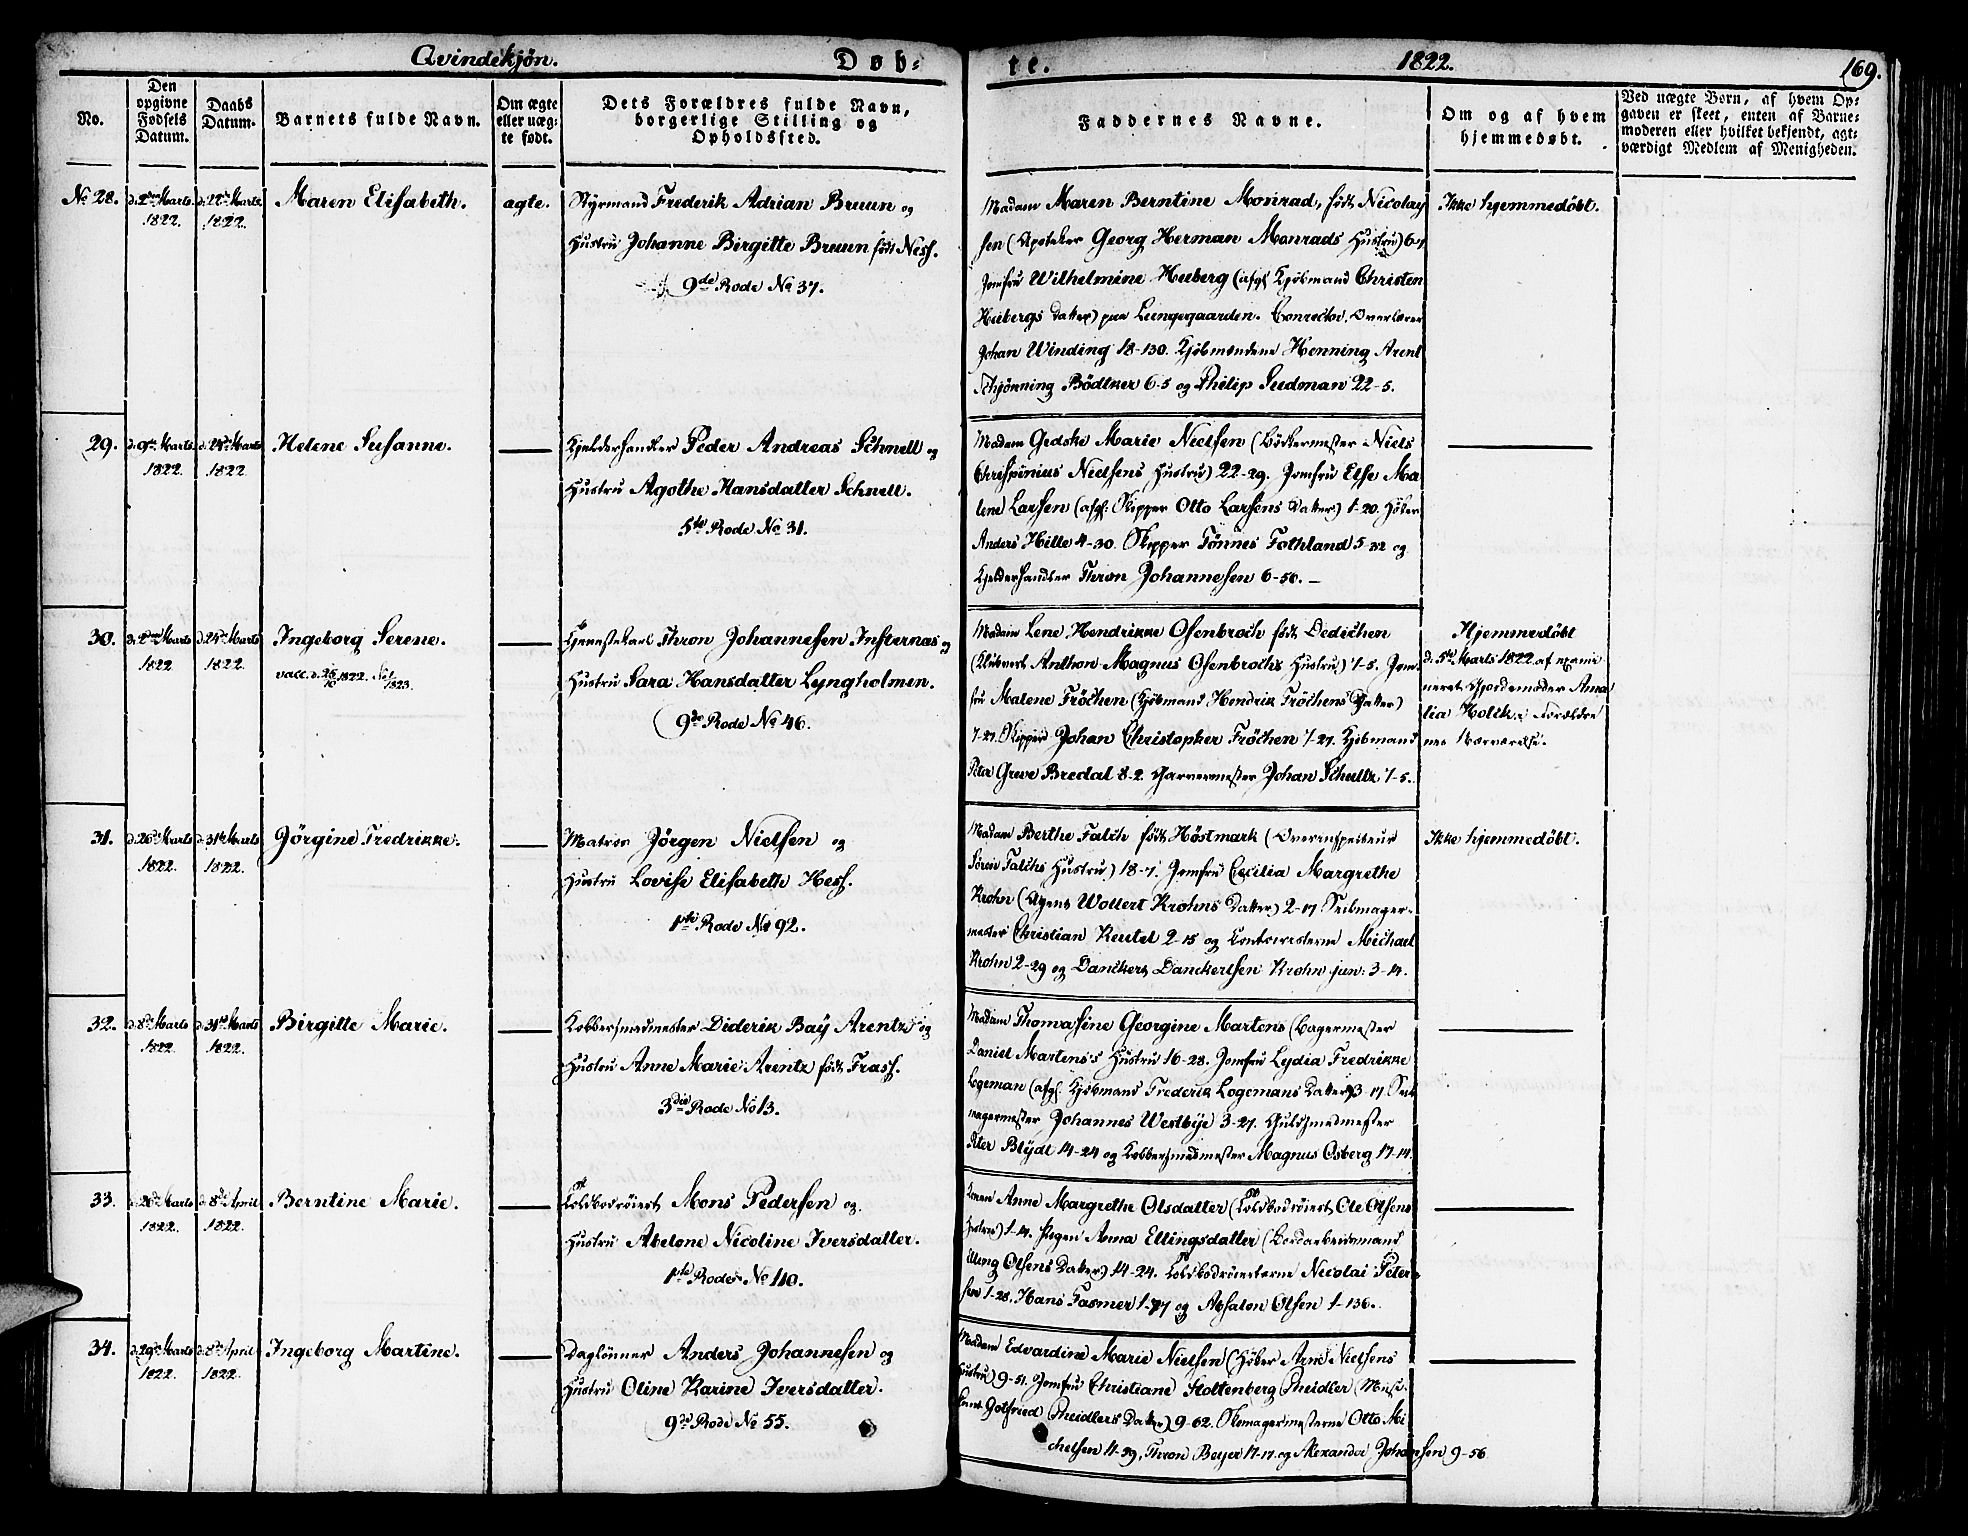 Qvindekjön. Døb-
te. 1822. 169.
No.
Den opgivne Fødsels Datum.
Daabs Datum.
Barnets fulde Navn.
Om ægte eller uægte født.
Dets Forældres fulde Navn, borgerlige Stilling og Opholdssted.
Faddernes Navne.
Om og af hvem hjemmedøbt.
Ved uægte Børn, af hvem Op-
gaven er skeet, enten af Barne-
moderen eller hvilket bekjendt, agt-
værdigt Medlem af Menigheden.
No 28.
Marts 1822.
Marts 1822.
Maren Elisabeth.
ægte.
Styrmand Frederik Adrian Bruun og
Hustru Johanne Birgitte Bruun født Ness.
9de Rode No 37.
Madam Maren Berntine Monrad, født Nicolay
sen (Apoteker Georg Herman Monrads Hustru) 6-1
Jomfru Wilhelmine Heiberg (afgl Kjøbmand Christen
Heibergs Datter) paa Lungegaarden. Conrector, Overlærer
Johan Winding 18-130. Kjøbmændene Henning Arent
Schjönning Bödtker 6-5 og Philip Sudman 22-5.
Ikke hjemmedöbt.
29.
d. 9de Marts 1822.
d. 24de Marts 1822
Helene Susanne.
Kjelderhandler Peder Andreas Schnell og
Hustru Agothe Hansdatter Schnell.
5te Rode No 31.
Madam Gedske Marie Nielsen (Bödkermester Niels
Chrispinius Nielsens Hustru) 22-29. Jomfru Else Ma
lene Larsen (afgl: Skipper Otto Larsens Datter) 1-20. Høker
Anders Hille 4-30. Skipper Tönnes Fothland 5-32 og
Kjelderhandler Thron Johannesen 6-50.
30.
Marts 1822
d. 24de Marts 1822.
Ingeborg Serene.
vacc. d. 25/10 1822.
Tjenestekarl Thron Johannesen Insternæs og
Hustru Sara Hansdatter Lyngholmen.
9de Rode No 46.
Madam Lene Hendrikke Osenbroch födt Dedichen
(Klokvert Anthon Magnus Osenbrochs Hustru) 7-5. Jom-
fru Malene Fröchen (Kjøbmand Hendrik Fröchens Datter)
7-27. Skipper Johan Christopher Fröchen 7-27. Kjøbmand
Peter Greve Bredal 8-2. Garvermester Johan Schultz 7-5.
Hjemmedöbt
d. 5te Marts 1822 af exami
neret Gjordemoder Ama
lia Holck, i Forældre
nes Nærværelse.
31.
d. 26de Marts 1822.
d. 31te Marts 1822.
Jörgine Fredrikke.
Matros Jörgen Nielsen og
Hustru Lovise Elisabeth Hess.
1ste Rode No 92.
Madam Berthe Falch födt Höstmark (Overinspecteur
Sören Falchs Hustru) 18-7. Jomfru Cecilia Margrethe
Krohn (Agent Wollert Krohns Datter) 2-17 Seilmager-
mester Christian Reutel 2-15 og Contoiristerne Michael
Krohn 2-29 og Danckert Danckertsen Krohn jun: 3-14.
Ikke hjemmedöbt.
32.
d. 8de Marts 1822
d. 31te Marts 1822.
Birgitte Marie.
Kobbersmedmester Diderik Baÿ Arentz og
Hustru Anne Marie Arentz födt Frass.
3die Rode No 13.
Madam Thomasine Georgine Martens (Bagermester
Daniel Martens's Hustru 16-28. Jomfru Lydia Fredrikke
Logeman (afgl. Kjøbmand Frederik Logemans Datter) 3-17 Seil
magermester Johannes Westbye 3-27. Guldsmedmester
Peter Blÿdt 14-24 og Kobbersmedmester Magnus Osberg 17-14.
33.
d. 26de Marts 1822.
d. 8de April 1822.
Berntine Marie.
Toldbodroiert Mons Pedersen og
Hustru Abelone Nicoline Iversdatter.
1ste Rode No 110.
Konen Anne Margrethe Olsdatter (Toldbodroiert Ole Olsens
Hustru) 1-14. Pigen Anna Ellingsdatter (Bordarbeidsmand
Elling Olsens Datter) 14-24. Toldbodroierterne Nicolai Peter-
sen 1-28. Hans Fasmer 1-77 og Absalon Olsen 1-136.
34.
d. 29de Marts 1822.
d. 8de April 1822.
Ingeborg Martine.
Daglönner Anders Johannesen og
Hustru Oline Karine Iversdatter.
9de Rode No 55.
Madam Edvardine Marie Nielsen (Høker Arne Nielsens
Hustru) 9-51. Jomfru Christiane Stoltenberg Scheidler (Musi-
kant Gotfried Scheidlers Datter) 9-62. Skomagermesterne Otto Mi
chelsen 11-39, Thron Beyer 17-17. og Alexander Johansen 9-56